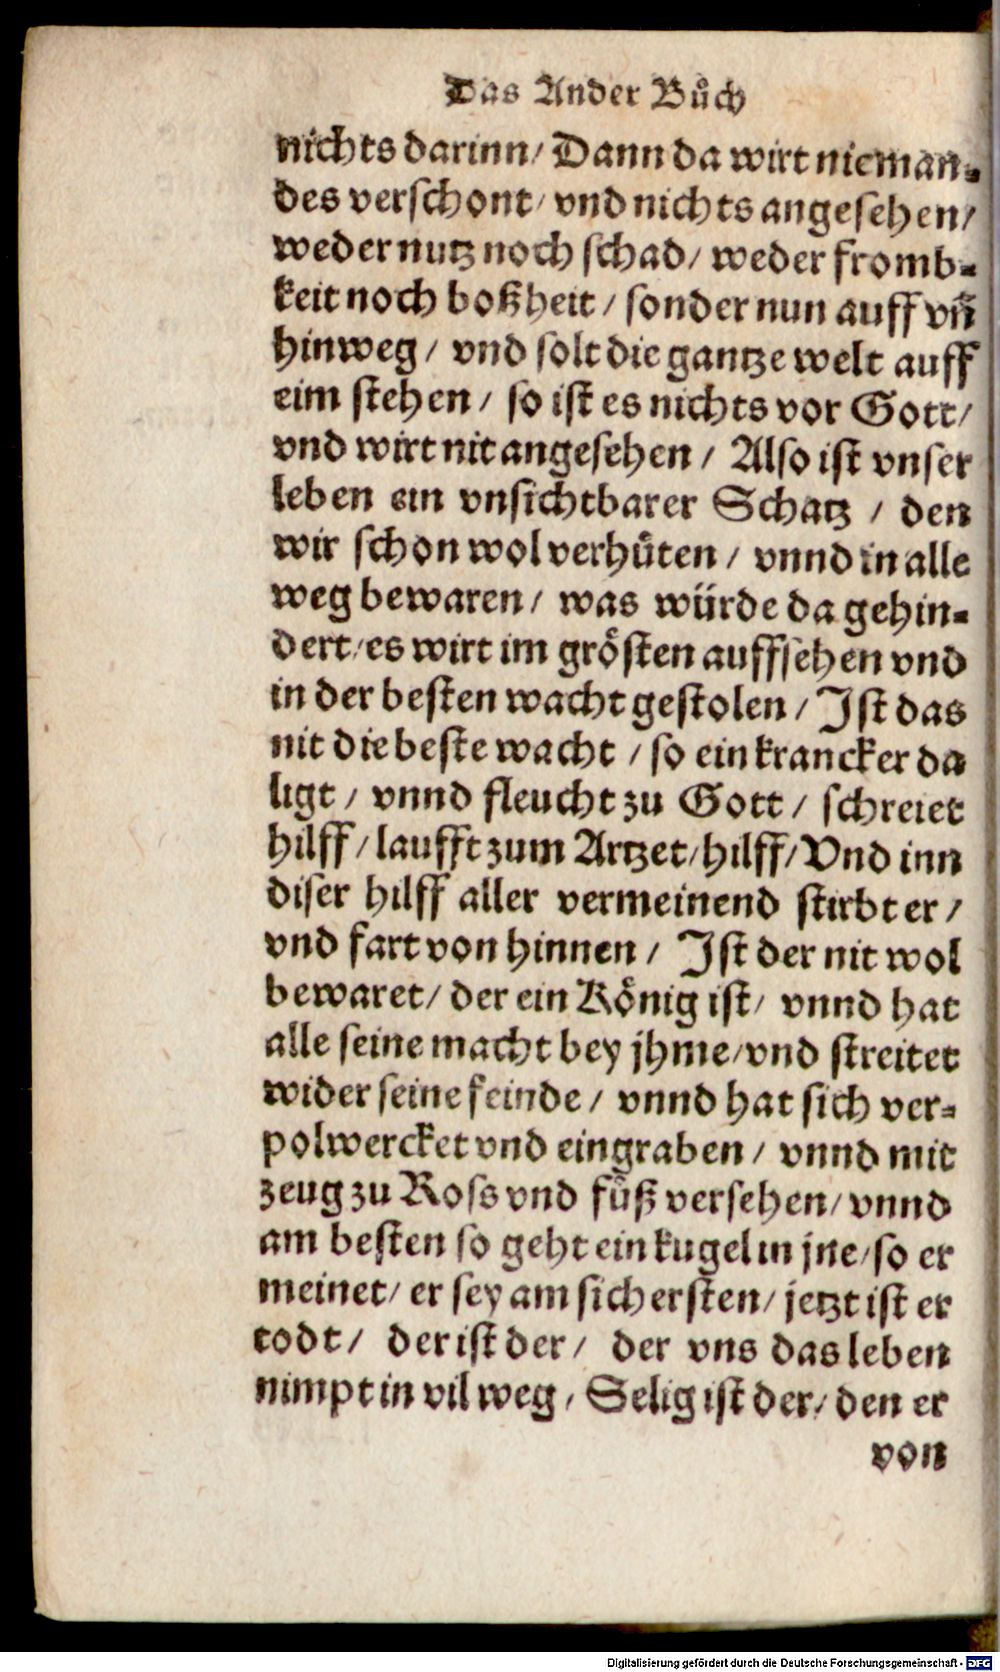 Das Ander Bůch
nichts darinn/ Dann da wirt nieman-
des verschont/ vnd nichts angesehen/
weder nutz noch schad/ weder fromb-
keit noch boßheit/ sonder nun auff vñ
hinweg/ vnd solt die gantze welt auff
eim stehen/ so ist es nichts vor Gott/
vnd wirt nit angesehen/ Also ist vnser
leben ein vnsichtbarer Schatz/ den
wir schon wol verhůten/ vnnd in alle
weg bewaren/ was würde da gehin-
dert/ es wirt im grösten auffsehen vnd
in der besten wacht gestolen/ Ist das
nit die beste wacht/ so ein krancker da
ligt/ vnnd fleucht zu Gott/ schreiet
hilff/ laufft zum Artzet/ hilff/ Vnd inn
diser hilff aller vermeinend stirbt er/
vnd fart von hinnen/ Ist der nit wol
bewaret/ der ein König ist/ vnnd hat
alle seine macht bey jhme/ vnd streitet
wider seine feinde/ vnnd hat sich ver-
polwercket vnd eingraben/ vnnd mit
zeug zu Ross vnd fůß versehen/ vnnd
am besten so geht ein kugel in jne/ so er
meinet/ er sey am sichersten/ jetzt ist er
todt/ der ist der/ der vns das leben
nimpt in vil weg/ Selig ist der/ den er
von
Digitalisierung gefördert durch die Deutsche Forschungsgemeinschaft - DFG